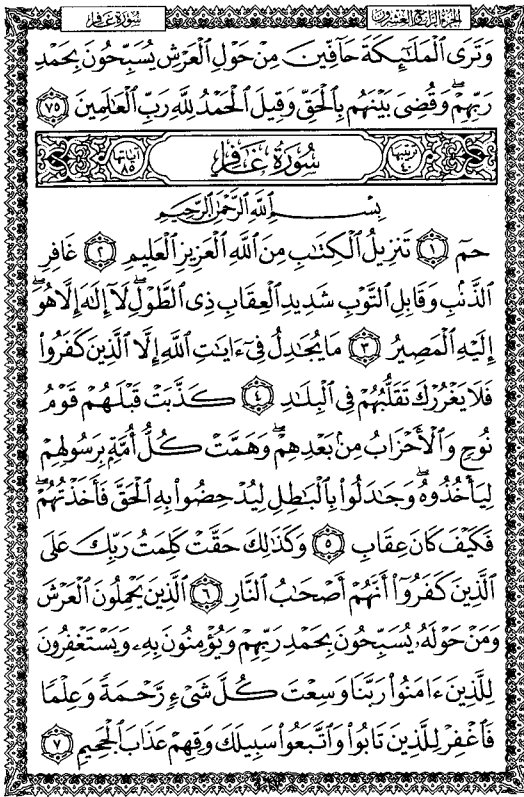 الجزء الرابع والعشرون
سورة غافر
وَتَرَى ٱلْمَلَٰٓئِكَةَ حَآفِّينَ مِنْ حَوْلِ ٱلْعَرْشِ يُسَبِّحُونَ بِحَمْدِ
رَبِّهِمْ ۖ وَقُضِىَ بَيْنَهُم بِٱلْحَقِّ وَقِيلَ ٱلْحَمْدُ لِلَّهِ رَبِّ ٱلْعَٰلَمِينَ ٧٥
ترتيبها ٤٠ سُورَةُ غَافِر آياتها ٨٥
بِسْمِ ٱللَّهِ ٱلرَّحْمَٰنِ ٱلرَّحِيمِ
حمٓ ١ تَنزِيلُ ٱلْكِتَٰبِ مِنَ ٱللَّهِ ٱلْعَزِيزِ ٱلْعَلِيمِ ٢ غَافِرِ
ٱلذَّنۢبِ وَقَابِلِ ٱلتَّوْبِ شَدِيدِ ٱلْعِقَابِ ذِى ٱلطَّوْلِ ۖ لَآ إِلَٰهَ إِلَّا هُوَ ۖ
إِلَيْهِ ٱلْمَصِيرُ ٣ مَا يُجَٰدِلُ فِىٓ ءَايَٰتِ ٱللَّهِ إِلَّا ٱلَّذِينَ كَفَرُوا۟
فَلَا يَغْرُرْكَ تَقَلُّبُهُمْ فِى ٱلْبِلَٰدِ ٤ كَذَّبَتْ قَبْلَهُمْ قَوْمُ
نُوحٍ وَٱلْأَحْزَابُ مِنۢ بَعْدِهِمْ ۖ وَهَمَّتْ كُلُّ أُمَّةٍۭ بِرَسُولِهِمْ
لِيَأْخُذُوهُ ۖ وَجَٰدَلُوا۟ بِٱلْبَٰطِلِ لِيُدْحِضُوا۟ بِهِ ٱلْحَقَّ فَأَخَذْتُهُمْ ۖ
فَكَيْفَ كَانَ عِقَابِ ٥ وَكَذَٰلِكَ حَقَّتْ كَلِمَتُ رَبِّكَ عَلَى
ٱلَّذِينَ كَفَرُوٓا۟ أَنَّهُمْ أَصْحَٰبُ ٱلنَّارِ ٦ ٱلَّذِينَ يَحْمِلُونَ ٱلْعَرْشَ
وَمَنْ حَوْلَهُۥ يُسَبِّحُونَ بِحَمْدِ رَبِّهِمْ وَيُؤْمِنُونَ بِهِۦ وَيَسْتَغْفِرُونَ
لِلَّذِينَ ءَامَنُوا۟ رَبَّنَا وَسِعْتَ كُلَّ شَىْءٍ رَّحْمَةً وَعِلْمًا
فَٱغْفِرْ لِلَّذِينَ تَابُوا۟ وَٱتَّبَعُوا۟ سَبِيلَكَ وَقِهِمْ عَذَابَ ٱلْجَحِيمِ ٧